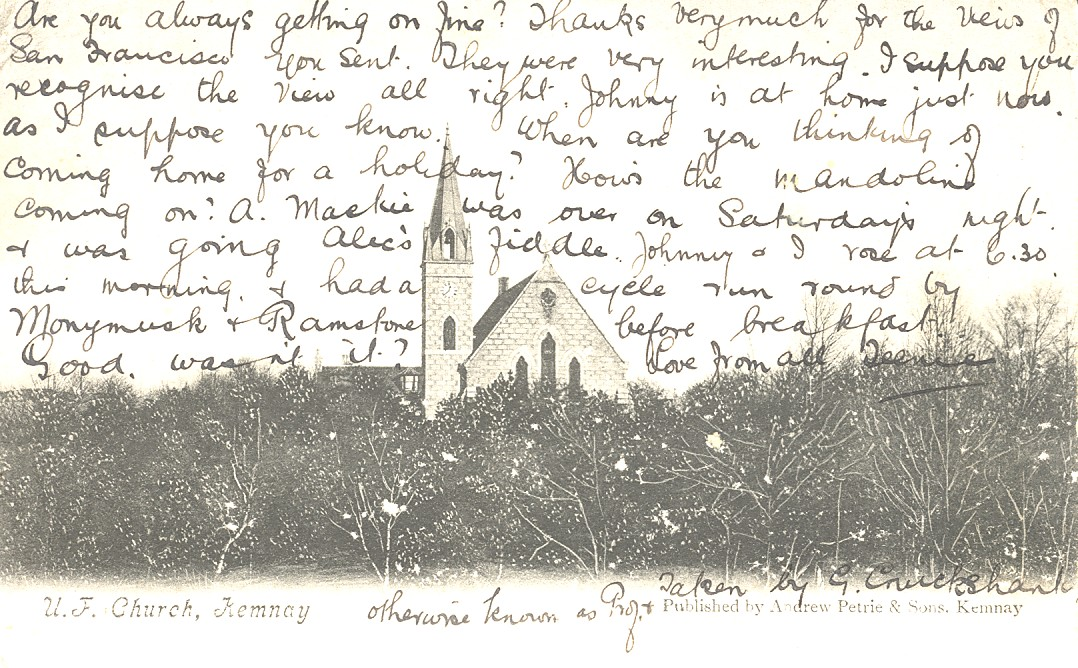 Are you always getting on fine? Thanks very much for the views of
San Francisco you sent. They were very interesting. I suppose you
recognise the view all right. Johnny is at home just now.
as I suppose you know. When are you thinking of
coming home for a holiday? Hows the mandoline
coming on? A. Mackie was over on Saturday's night.
& was going Alec's fiddle. Johnny & I rose at 6.30
this morning. & had a cycle run round by
Monymusk & Ramstone before breakfast.
Good. was it it? Love from all Teenie
Taken by G. Cruickshank
U.F. Church, Kemnay
otherwise known as Prof.
Published by Andrew Petrie & Sons. Kemnay